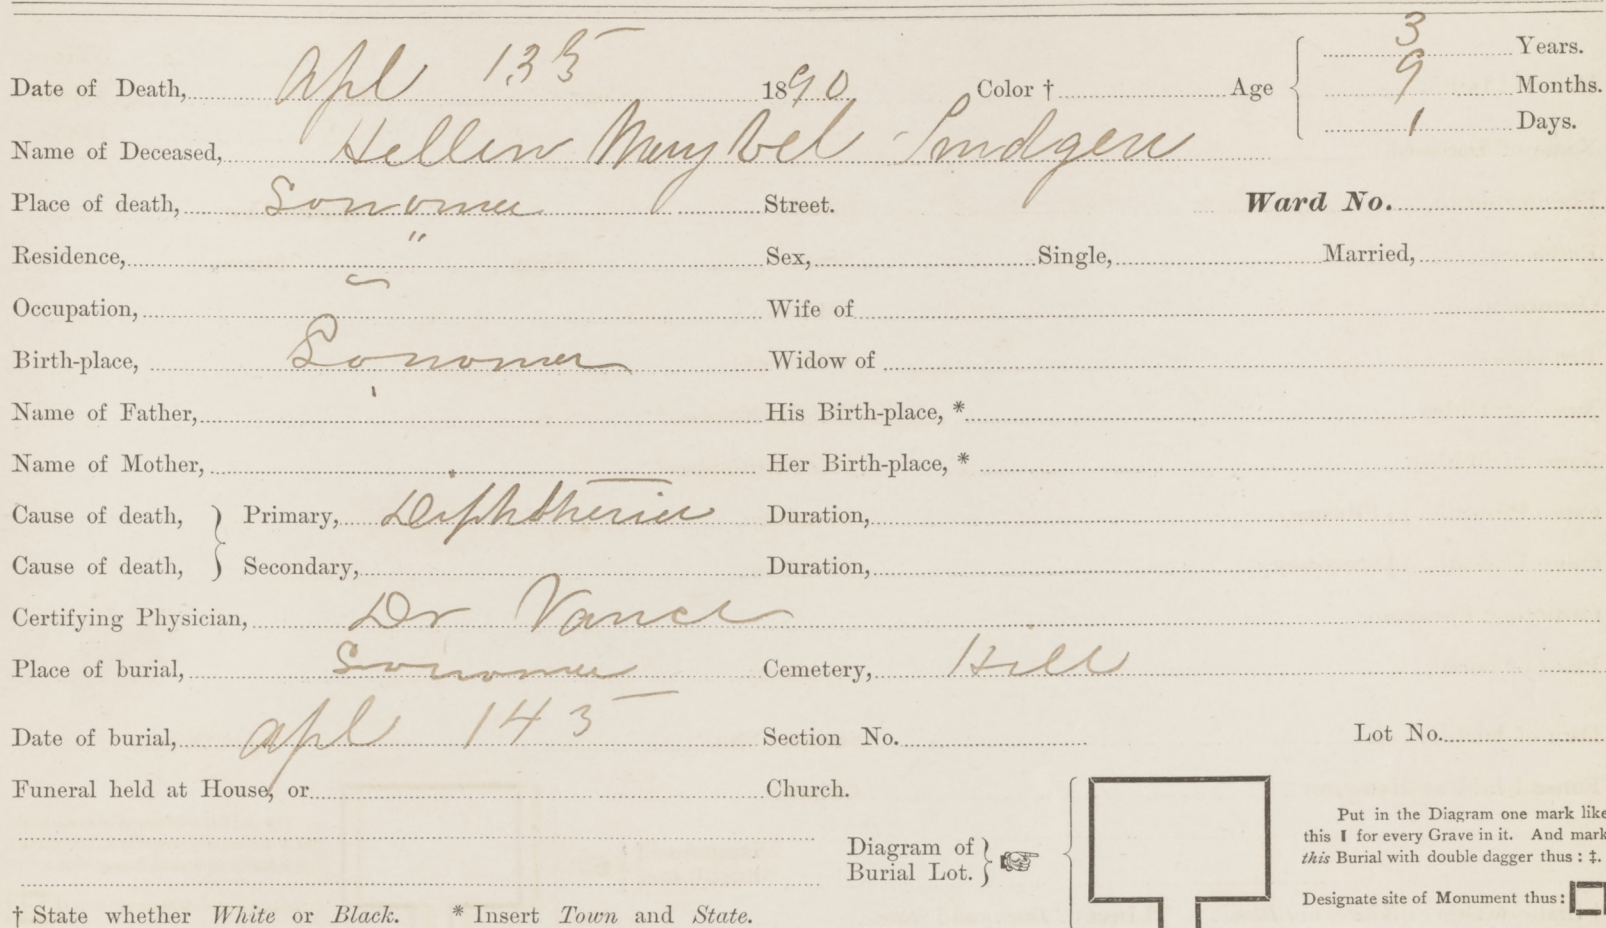 3 Years.
Date of Death, Apl 13 1890 Color † Age 9 Months.
1 Days.
Name of Deceased, Hellen May bel
Place of death, Sonoma Street. Ward No.
Residence, " Sex, Single, Married,
Occupation, Wife of
Birth-place, Sonoma Widow of
Name of Father, His Birth-place, *
Name of Mother, Her Birth-place, *
Cause of death, } Primary, Diphtheria Duration,
Cause of death, } Secondary, Duration,
Certifying Physician, Dr Vance
Place of burial, Sonoma Cemetery, Hill
Date of burial, Apl 14 Section No. Lot No.
Funeral held at House, or Church.
Diagram of
Burial Lot. }
Put in the Diagram one mark like
this I for every Grave in it. And mark
this Burial with double dagger thus : ‡.
Designate site of Monument thus :
† State whether White or Black. * Insert Town and State.